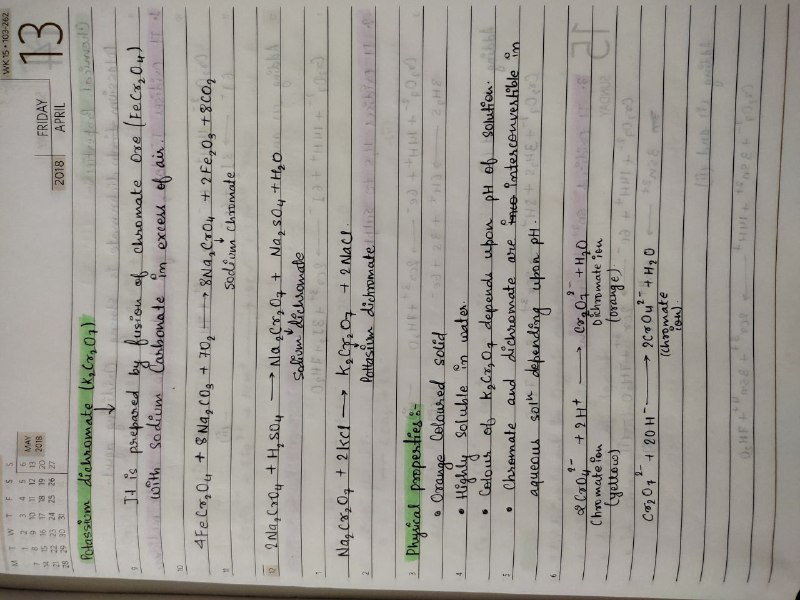 WK 15 • 103-262
13
FRIDAY
APRIL
2018
MAY
2018
M T W T F S S
1 2 3 4 5 6
7 8 9 10 11 12 13
14 15 16 17 18 19 20
21 22 23 24 25 26 27
28 29 30 31
Potassium dichromate (K₂Cr₂O₇)
↓
9 It is prepared by fusion of chromate ore (FeCr₂O₄)
with sodium Carbonate in excess of air.
10 4FeCr₂O₄ + 8Na₂CO₃ + 7O₂ ⟶ 8Na₂CrO₄ + 2Fe₂O₃ + 8CO₂
↓
11 sodium chromate
12 2Na₂CrO₄ + H₂SO₄ ⟶ Na₂Cr₂O₇ + Na₂SO₄ + H₂O
↓
1 Sodium dichromate
Na₂Cr₂O₇ + 2KCl ⟶ K₂Cr₂O₇ + 2NaCl.
2 Pottasium dichromate.
3 Physical properties :-
• Orange Coloured solid
4 • Highly soluble in water.
• Colour of K₂Cr₂O₇ depends upon pH of solution.
5 • Chromate and dichromate are interconvertible in
aqueous solⁿ depending upon pH.
6 2CrO₄²⁻ + 2H⁺ ⟶ Cr₂O₇²⁻ + H₂O
Chromate ion Dichromate ion
(yellow) (orange)
Cr₂O₇²⁻ + 2OH⁻ ⟶ 2CrO₄²⁻ + H₂O
(Chromate
ion).